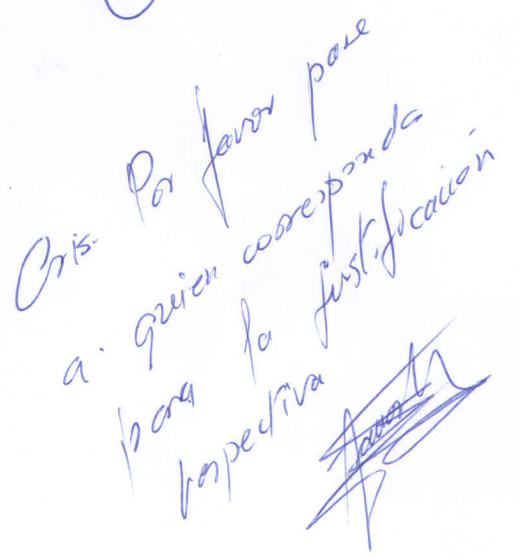 Cris. Por favor pase
a. quien corresponda
para la justificación
respectiva